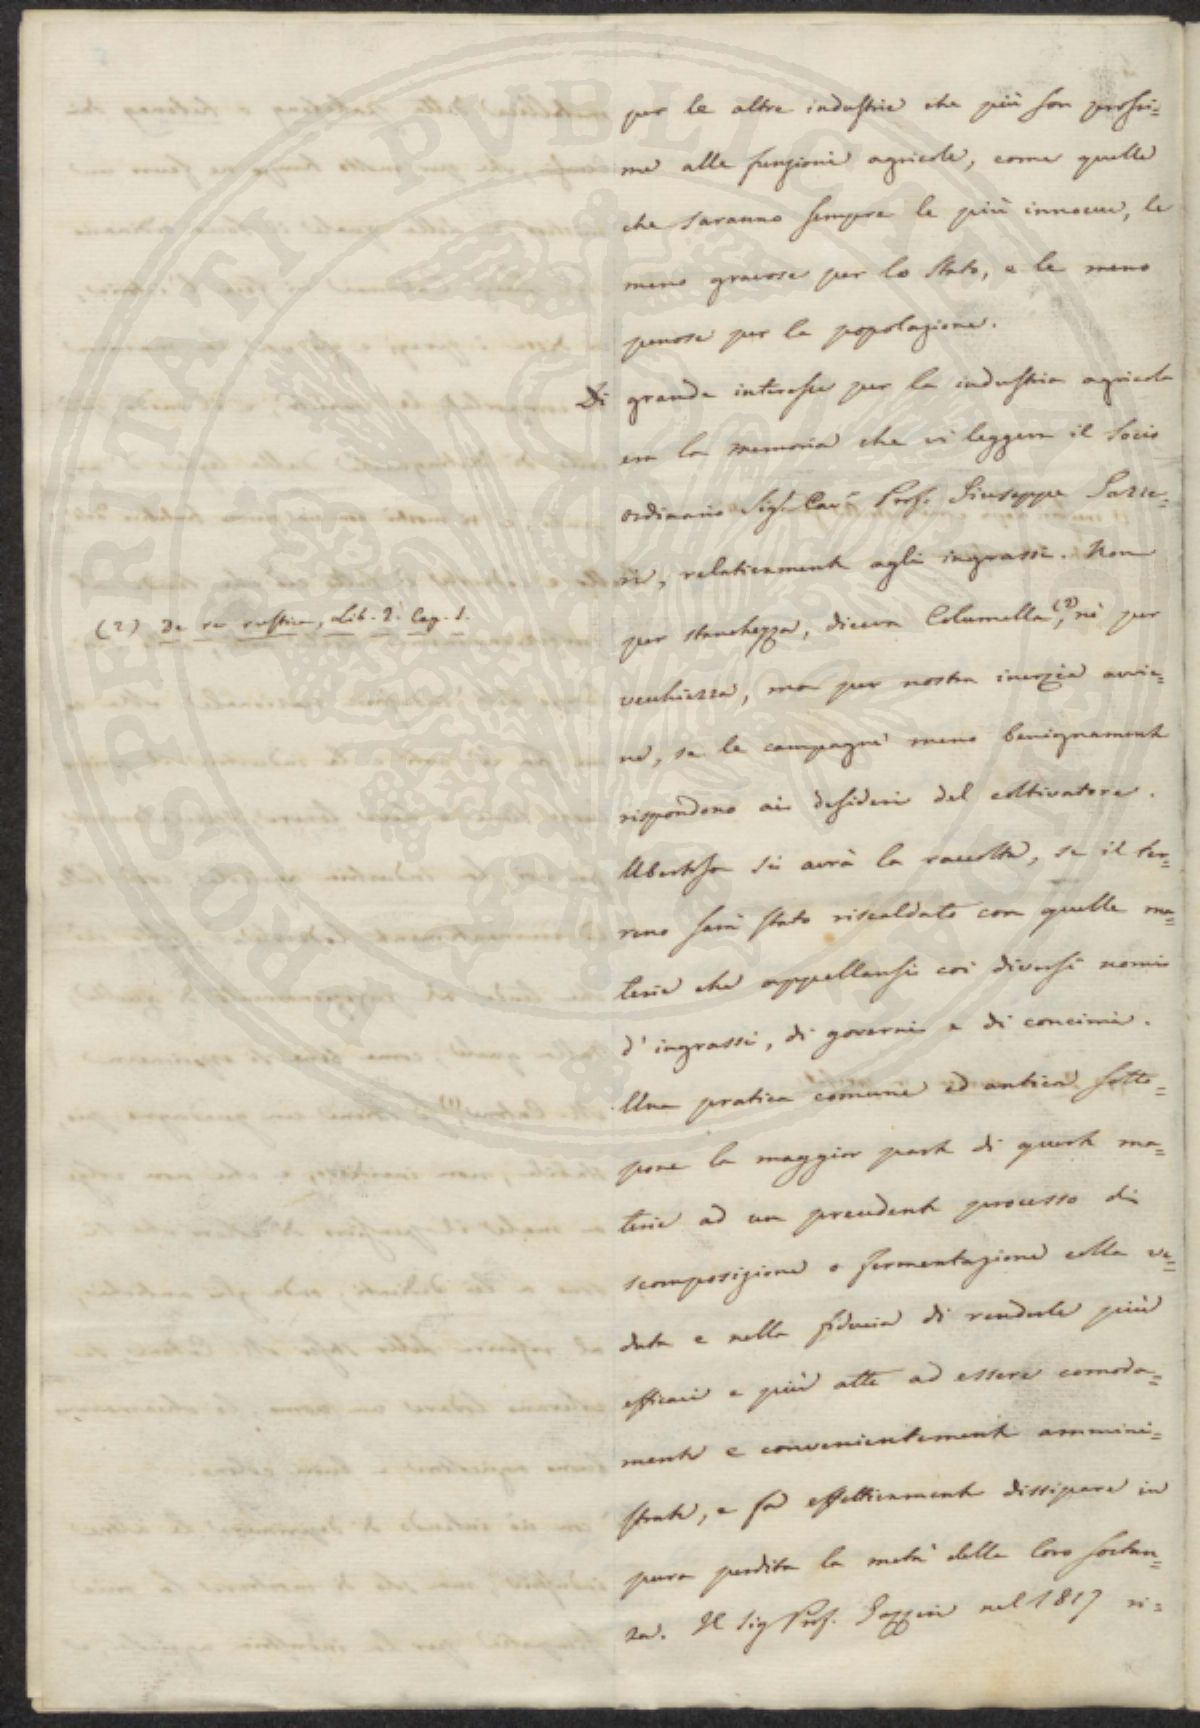 per le altre industrie che più son prossi=
me alle funzioni agricole, come quelle
che saranno sempre le più innocue, le
meno gravose per lo stato, e le meno
penose per la popolazione.
Di grande interesse per la industria agricola
era la memoria che vi leggeva il Socio
ordinario Sig. Cav. Prof. Giuseppe Gazze=
ri, relativamente agli ingrassi. Non
per stanchezza, diceva Columella(2), nè per
vecchiezza, ma per nostra inerzia avvie=
ne, se le campagne meno benignamente
rispondono ai desideri del coltivatore.
Ubertosa si avrà la raccolta, se il ter=
reno sarà stato riscaldato con quelle ma=
terie che appellansi coi diversi nomi
d'ingrassi, di governi e di concimi.
Una pratica comune ed antica sotto=
pone la maggior parte di queste ma=
terie ad un precedente processo di
scomposizione o fermentazione colla ve=
duta e nella fiducia di renderle più
efficaci e più atte ad essere comoda=
mente e convenientemente ammini=
strate, e fa effettivamente dissipare in
pura perdita la metà della loro sostan=
za. Il Sig Prof. Gazzeri nel 1817 ri=
(2) De re rustica, Lib. 2. Cap. 1.
PROSPERITATI PVBLICAE